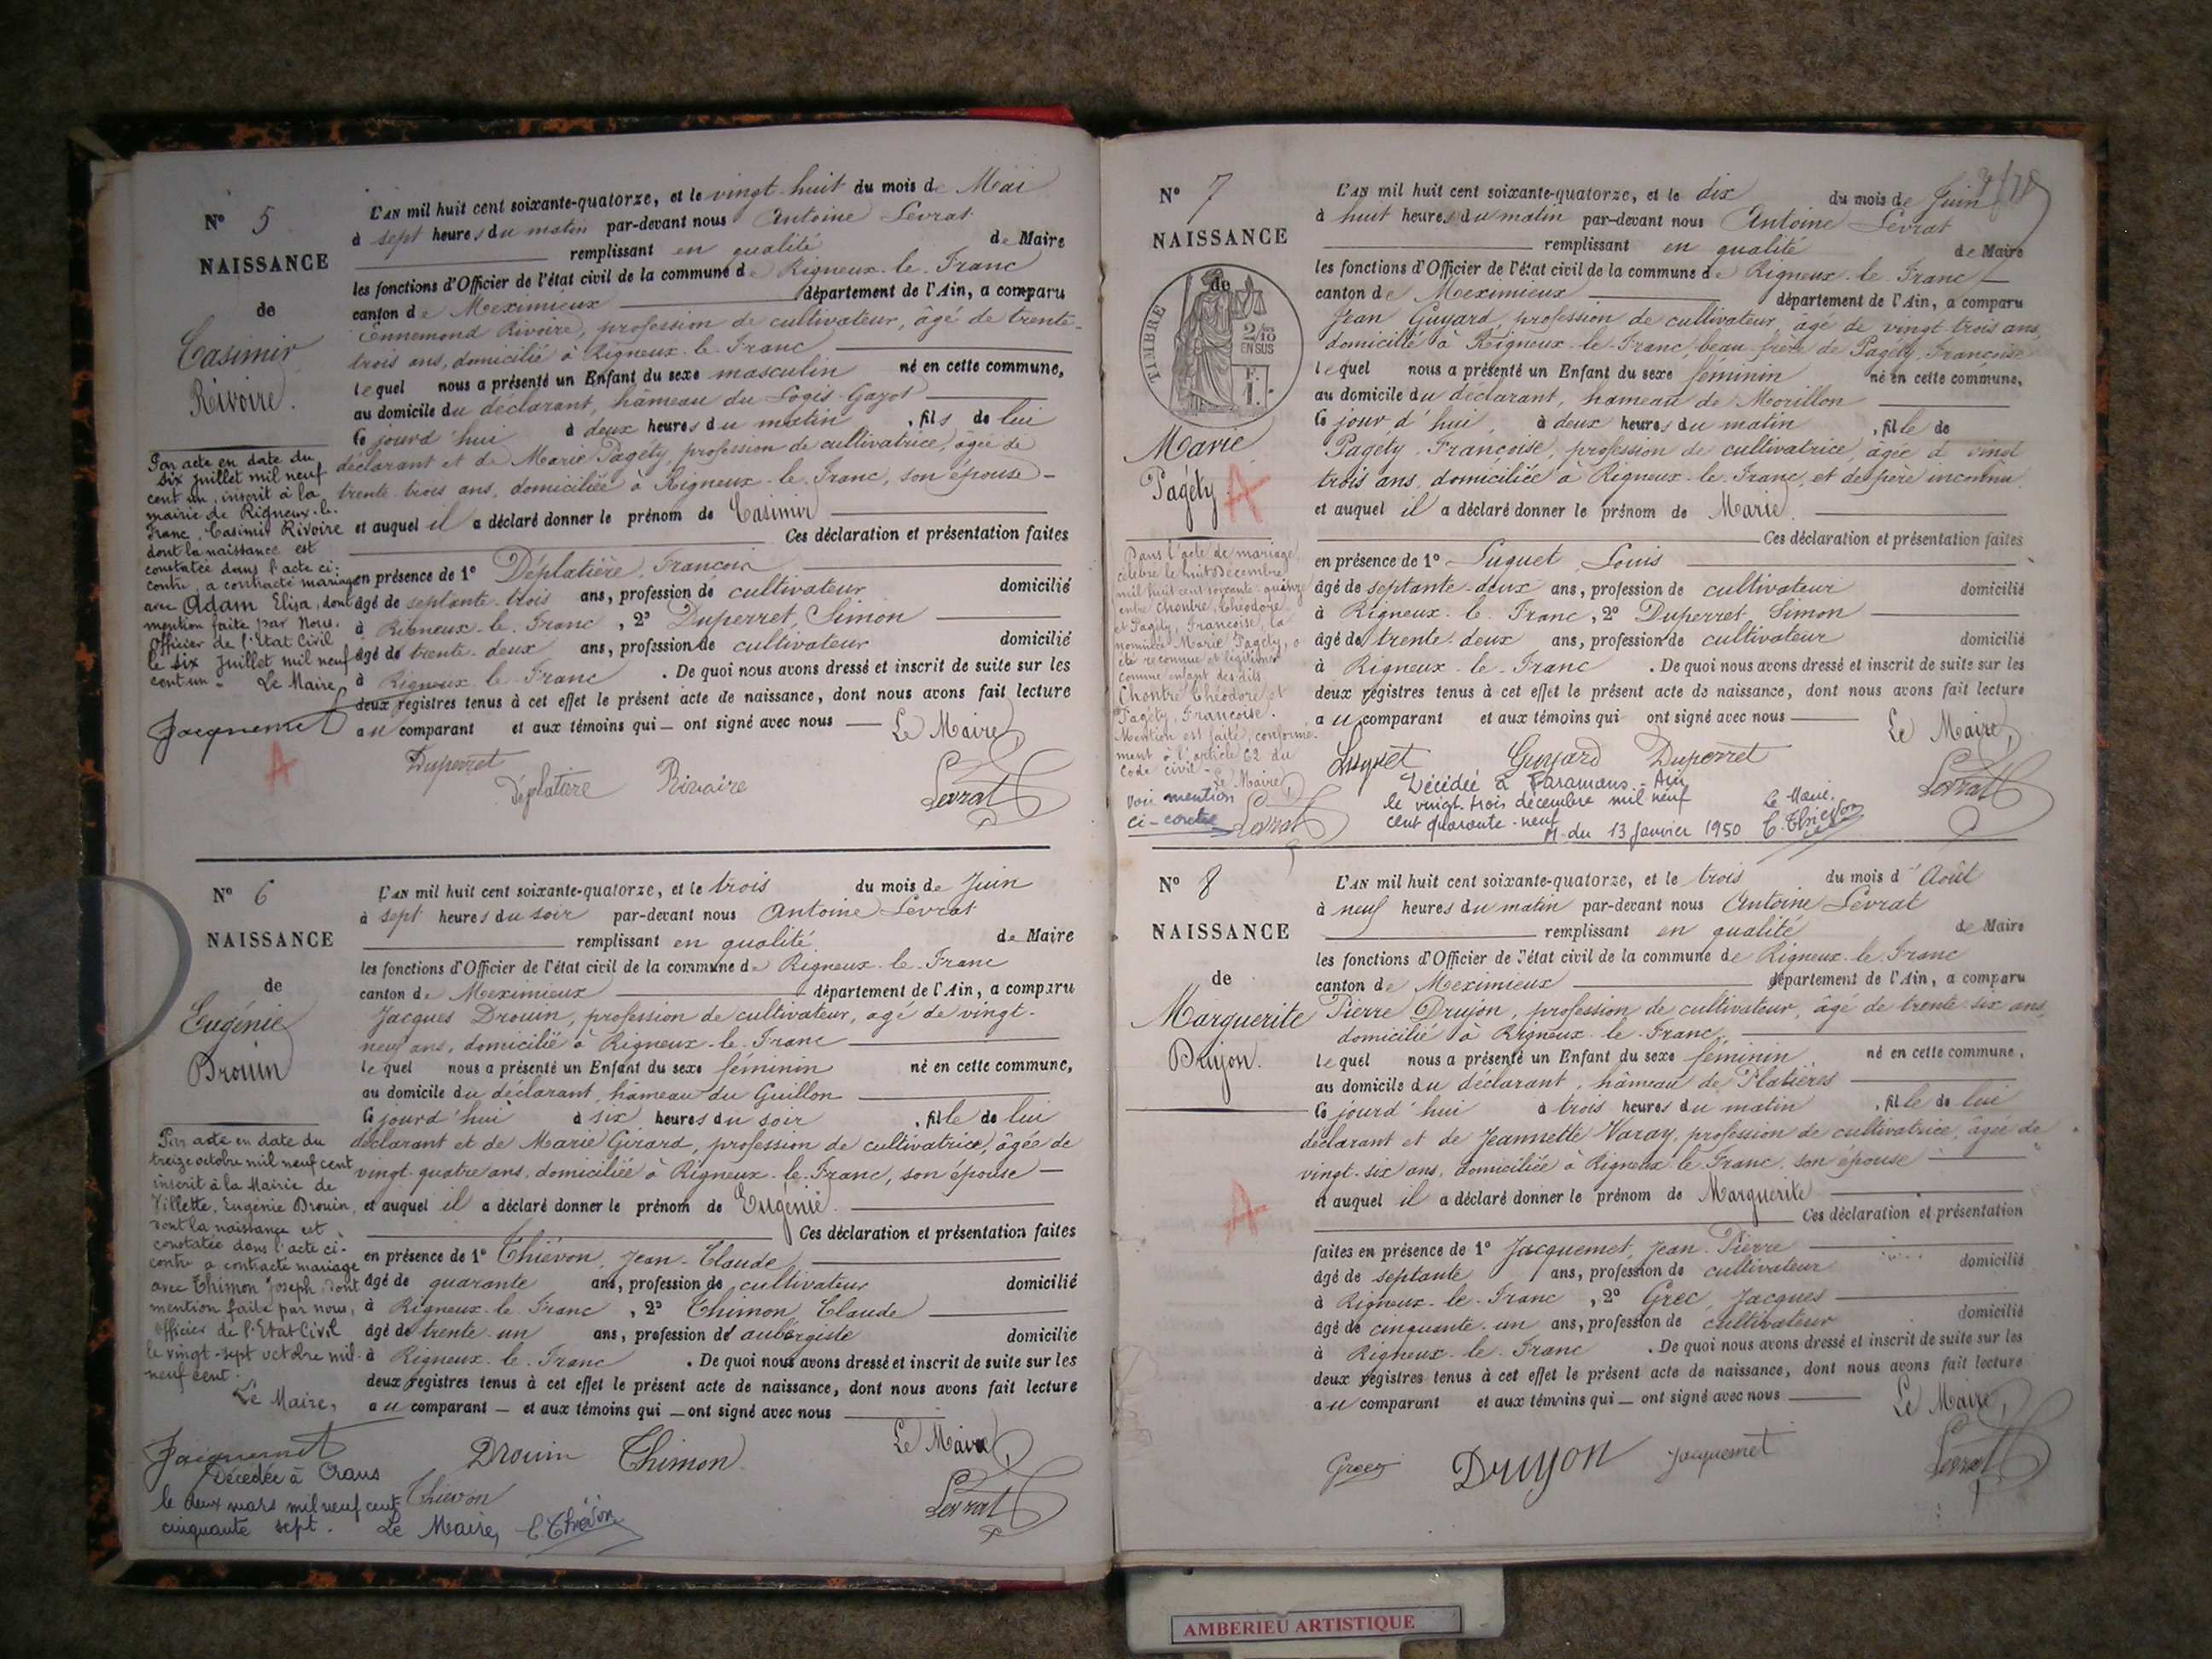 N° 5
NAISSANCE
de
Casimir
Rivoire.
L'AN mil huit cent soixante-quatorze, et le vingt-huit du mois de Mai
à sept heures du matin par-devant nous Antoine Levrat
remplissant en qualité de Maire
les fonctions d'Officier de l'état civil de la commune de Rigneux-le-Franc
canton de Meximieux département de l'Ain, a comparu
Ennemond Rivoire, profession de cultivateur, âgé de trente-
trois ans, domicilié à Rigneux-le-Franc
lequel nous a présenté un Enfant du sexe masculin né en cette commune,
au domicile du déclarant, hâmeau du Logis-Gayot
ce jourd'hui à deux heures du matin, fils de lui
déclarant et de Marie Pagéty, profession de cultivatrice, âgée de
trente-trois ans, domiciliée à Rigneux-le-Franc, son épouse -
et auquel il a déclaré donner le prénom de Casimir
Ces déclaration et présentation faites
en présence de 1° Déplatière, François
âgé de septante-trois ans, profession de cultivateur domicilié
à Rigneux-le-Franc, 2° Duperret, Simon
âgé de trente-deux ans, profession de cultivateur domicilié
à Rigneux-le-Franc. De quoi nous avons dressé et inscrit de suite sur les
deux registres tenus à cet effet le présent acte de naissance, dont nous avons fait lecture
au comparant et aux témoins qui — ont signé avec nous — Le Maire,
Duperret
Déplatière Rivoire Levrat
Par acte en date du
six juillet mil neuf
cent un, inscrit à la
mairie de Rigneux-le-
Franc, Casimir Rivoire
dont la naissance est
constatée dans l'acte ci-
contre, a contracté mariage
avec Adam Elisa, dont
mention faite par Nous,
Officier de l'Etat Civil
le six Juillet mil neuf
cent un - Le Maire,
Jacquemet
A
N° 6
NAISSANCE
de
Eugénie
Drouin
L'AN mil huit cent soixante-quatorze, et le trois du mois de Juin
à sept heures du soir par-devant nous Antoine Levrat
remplissant en qualité de Maire
les fonctions d'Officier de l'état civil de la commune de Rigneux-le-Franc
canton de Meximieux département de l'Ain, a comparu
Jacques Drouin, profession de cultivateur, âgé de vingt-
neuf ans, domicilié à Rigneux-le-Franc
lequel nous a présenté un Enfant du sexe féminin né en cette commune,
au domicile du déclarant, hâmeau du Guillon
ce jourd'hui à six heures du soir, fille de lui
déclarant et de Marie Girard, profession de cultivatrice, âgée de
vingt-quatre ans, domiciliée à Rigneux-le-Franc, son épouse —
et auquel il a déclaré donner le prénom de Eugénie
Ces déclaration et présentation faites
en présence de 1° Thiévon, Jean-Claude
âgé de quarante ans, profession de cultivateur domicilié
à Rigneux-le-Franc, 2° Thimon, Claude
âgé de trente-un ans, profession de aubergiste domicilié
à Rigneux-le-Franc. De quoi nous avons dressé et inscrit de suite sur les
deux registres tenus à cet effet le présent acte de naissance, dont nous avons fait lecture
au comparant — et aux témoins qui — ont signé avec nous
Le Maire
Drouin Thimon
Thievon Levrat
Par acte en date du
treize octobre mil neuf cent
inscrit à la Mairie de
Villette, Eugénie Drouin,
dont la naissance est
constatée dans l'acte ci-
contre a contracté mariage
avec Thimon Joseph, dont
mention faite par nous,
officier de l'Etat Civil
le vingt-sept octobre mil
neuf cent.
Le Maire,
Jacquemet
Décédée à Crans
le deux mars mil neuf cent
cinquante sept. Le Maire, C. Thiévon
N° 7
NAISSANCE
de
TIMBRE
2/10
EN SUS
F.
1.
Marie
Pagéty
A
3/78
L'AN mil huit cent soixante-quatorze, et le dix du mois de Juin
à huit heures du matin par-devant nous Antoine Levrat
remplissant en qualité de Maire
les fonctions d'Officier de l'état civil de la commune de Rigneux-le-Franc
canton de Meximieux département de l'Ain, a comparu
Jean Guyard, profession de cultivateur, âgé de vingt-trois ans,
domicilié à Rigneux-le-Franc, beau-frère de Pagéty, Françoise
lequel nous a présenté un Enfant du sexe féminin né en cette commune,
au domicile du déclarant, hameau de Morillon
ce jour d'hui, à deux heures du matin, fille de
Pagéty, Françoise, profession de cultivatrice, âgée d vingt
trois ans, domiciliée à Rigneux-le-Franc, et de père inconnu.
et auquel il a déclaré donner le prénom de Marie.
Ces déclaration et présentation faites
en présence de 1° Luquet, Louis
âgé de septante-deux ans, profession de cultivateur domicilié
à Rigneux-le-Franc, 2° Duperret, Simon
âgé de trente-deux ans, profession de cultivateur domicilié
à Rigneux-le-Franc. De quoi nous avons dressé et inscrit de suite sur les
deux registres tenus à cet effet le présent acte de naissance, dont nous avons fait lecture
au comparant et aux témoins qui ont signé avec nous — Le Maire,
Luquet Guyard Duperret Levrat
Décédée à Faramans - Ain
le vingt-trois décembre mil neuf
cent quarante-neuf Le Maire.
M. du 13 Janvier 1950 C. Thiévon
Dans l'acte de mariage
célébré le huit Décembre
mil huit cent soixante-quinze
entre Chontre, Théodore
et Pagéty, Françoise, la
nommée Marie Pagéty, a
été reconnue et légitimée
comme enfant des dits
Chontre Théodore et
Pagéty, Françoise.
Mention est faite, conformé-
ment à l'article 62 du
Code civil -
Le Maire
Levrat
Voir mention
ci-contre
N° 8
NAISSANCE
de
Marguerite
Drujon.
A
L'AN mil huit cent soixante-quatorze, et le trois du mois d'Août
à neuf heures du matin par-devant nous Antoine Levrat
remplissant en qualité de Maire
les fonctions d'Officier de l'état civil de la commune de Rigneux-le-Franc
canton de Meximieux département de l'Ain, a comparu
Pierre Drujon, profession de cultivateur, âgé de trente-six ans,
domicilié à Rigneux-le-Franc,
lequel nous a présenté un Enfant du sexe féminin né en cette commune,
au domicile du déclarant, hâmeau de Platières
ce jourd'hui à trois heures du matin, fille de lui
déclarant et de Jeannette Varay, profession de cultivatrice, âgée de
vingt-six ans, domiciliée à Rigneux-le-Franc, son épouse
et auquel il a déclaré donner le prénom de Marguerite
Ces déclaration et présentation
faites en présence de 1° Jacquemet, Jean-Pierre
âgé de septante ans, profession de cultivateur domicilié
à Rigneux-le-Franc, 2° Grec, Jacques
âgé de cinquante-un ans, profession de cultivateur domicilié
à Rigneux-le-Franc. De quoi nous avons dressé et inscrit de suite sur les
deux registres tenus à cet effet le présent acte de naissance, dont nous avons fait lecture
au comparant et aux témoins qui — ont signé avec nous
Le Maire,
Drujon Jacquemet Levrat
AMBERIEU ARTISTIQUE